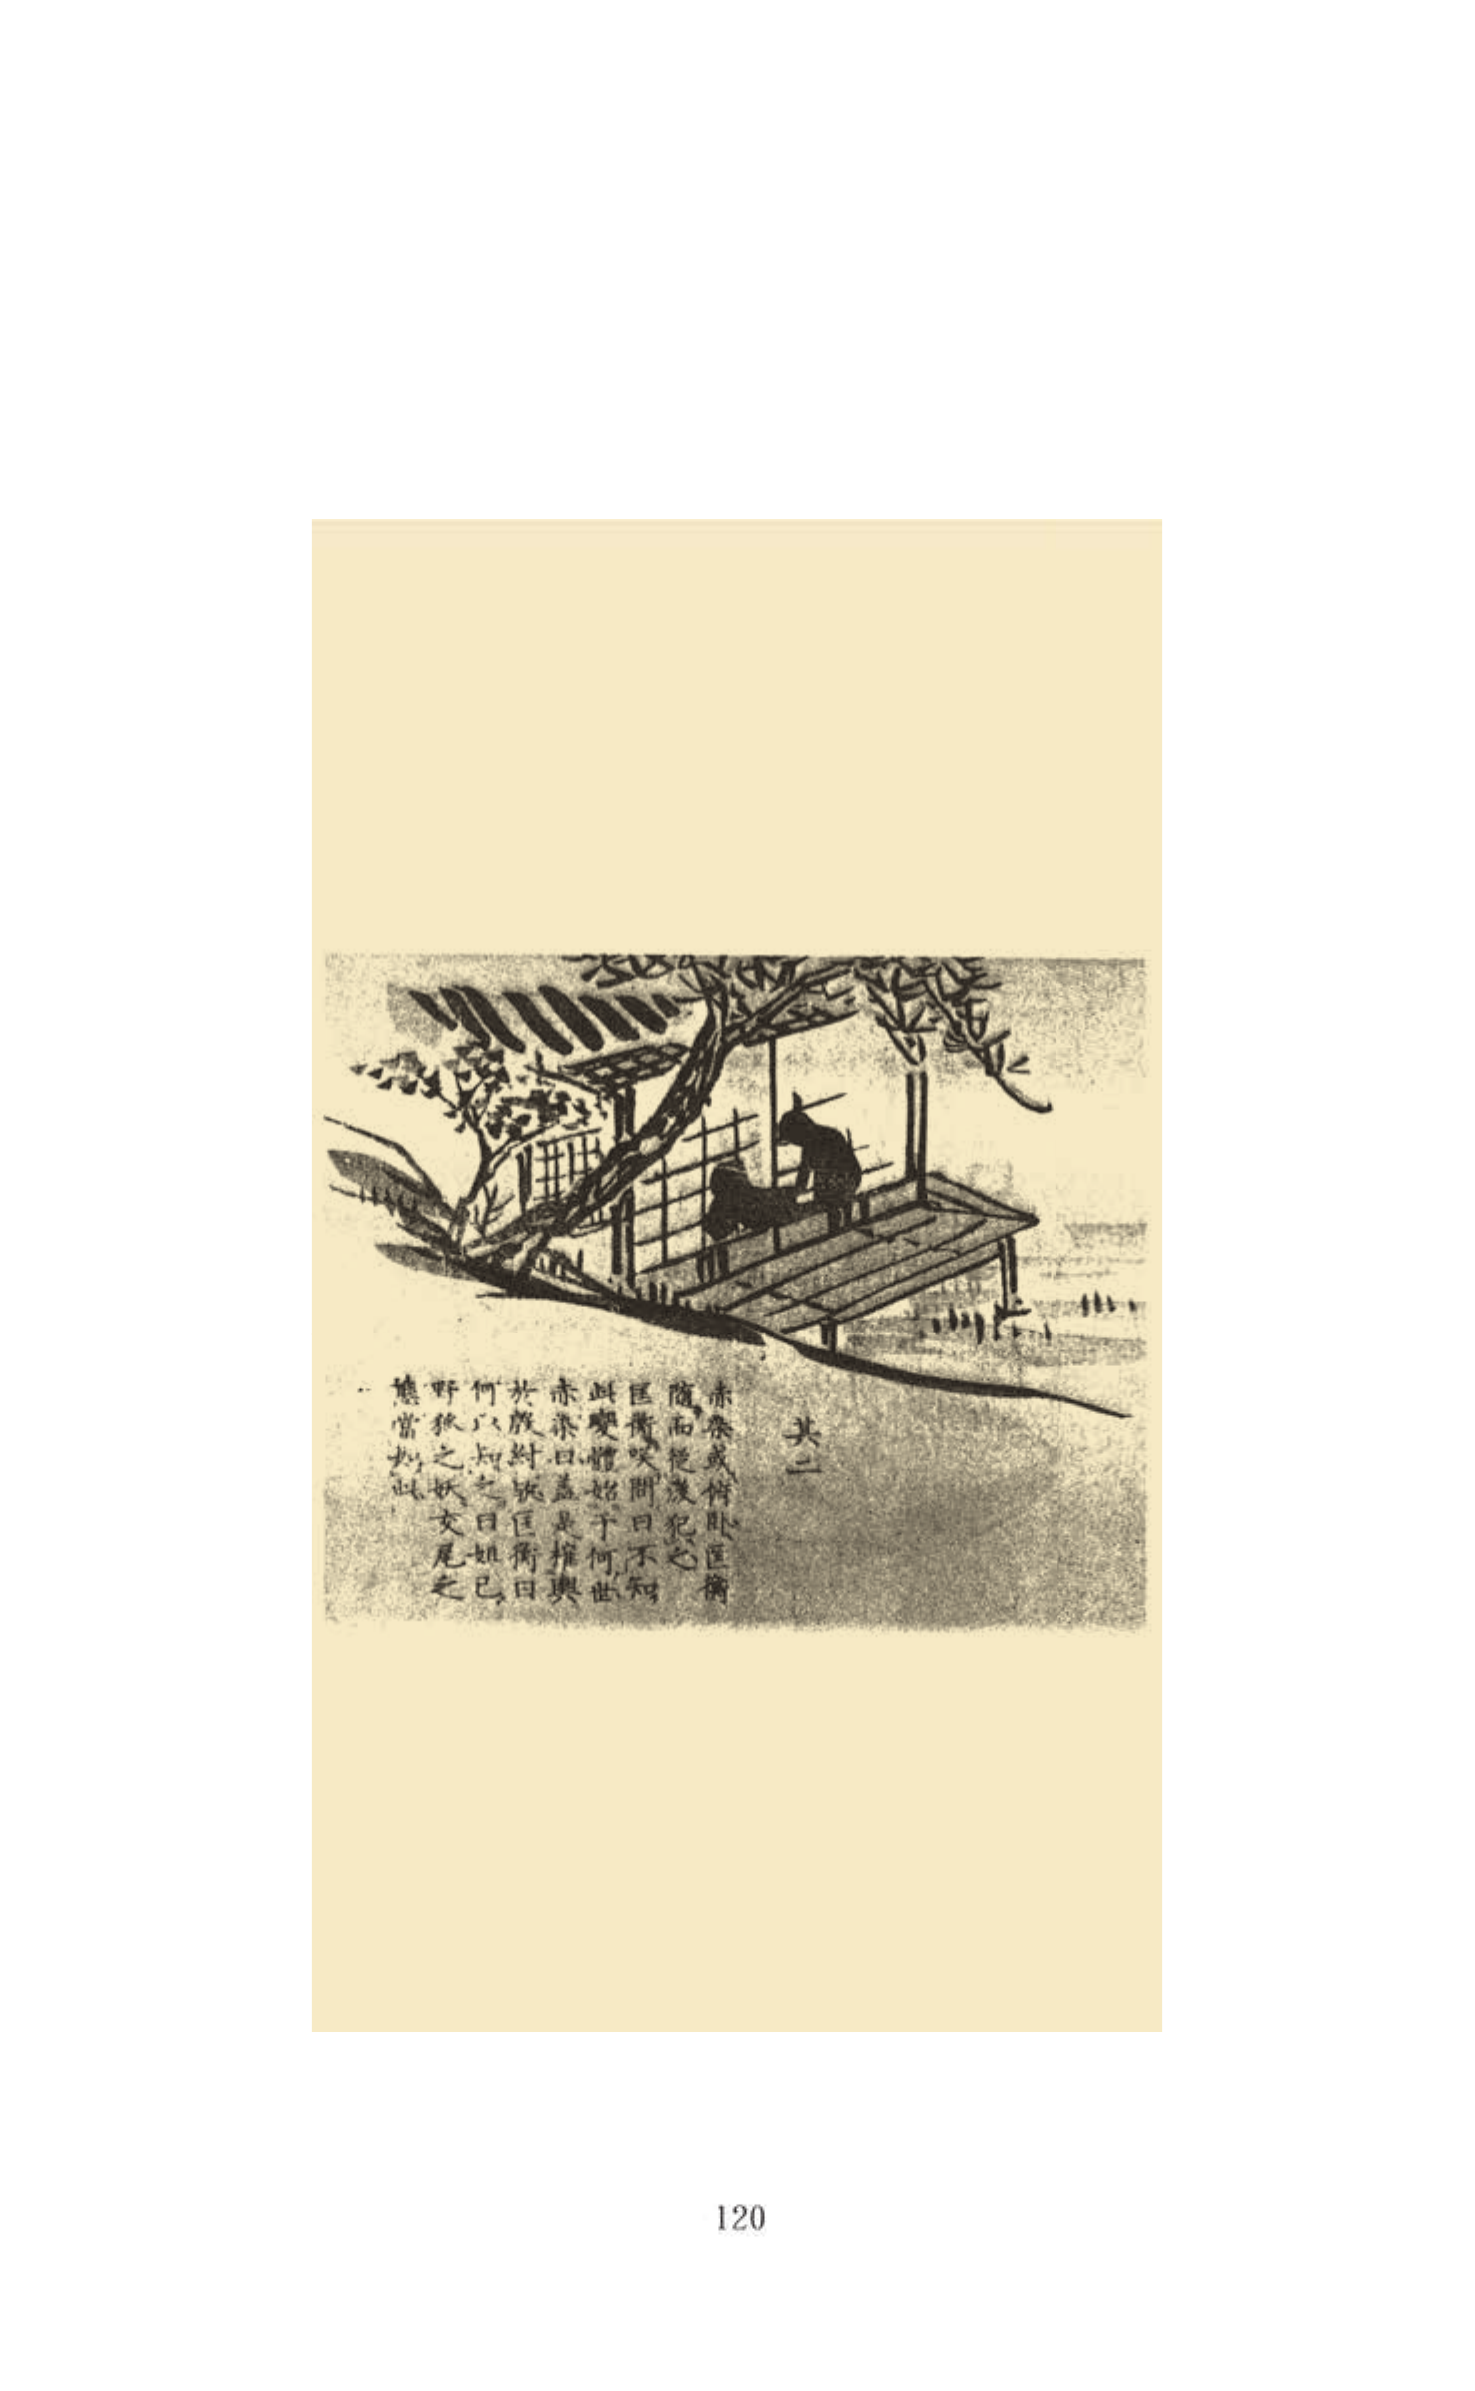 其二
赤染或俯臥匡衡
随而從後犯之
匡衡咲問曰不知
此變體始于何世
赤染曰蓋是権輿
於殷紂歟匡衡曰
何以知之曰妲己
野狐之妖交尾之
態當如此
120